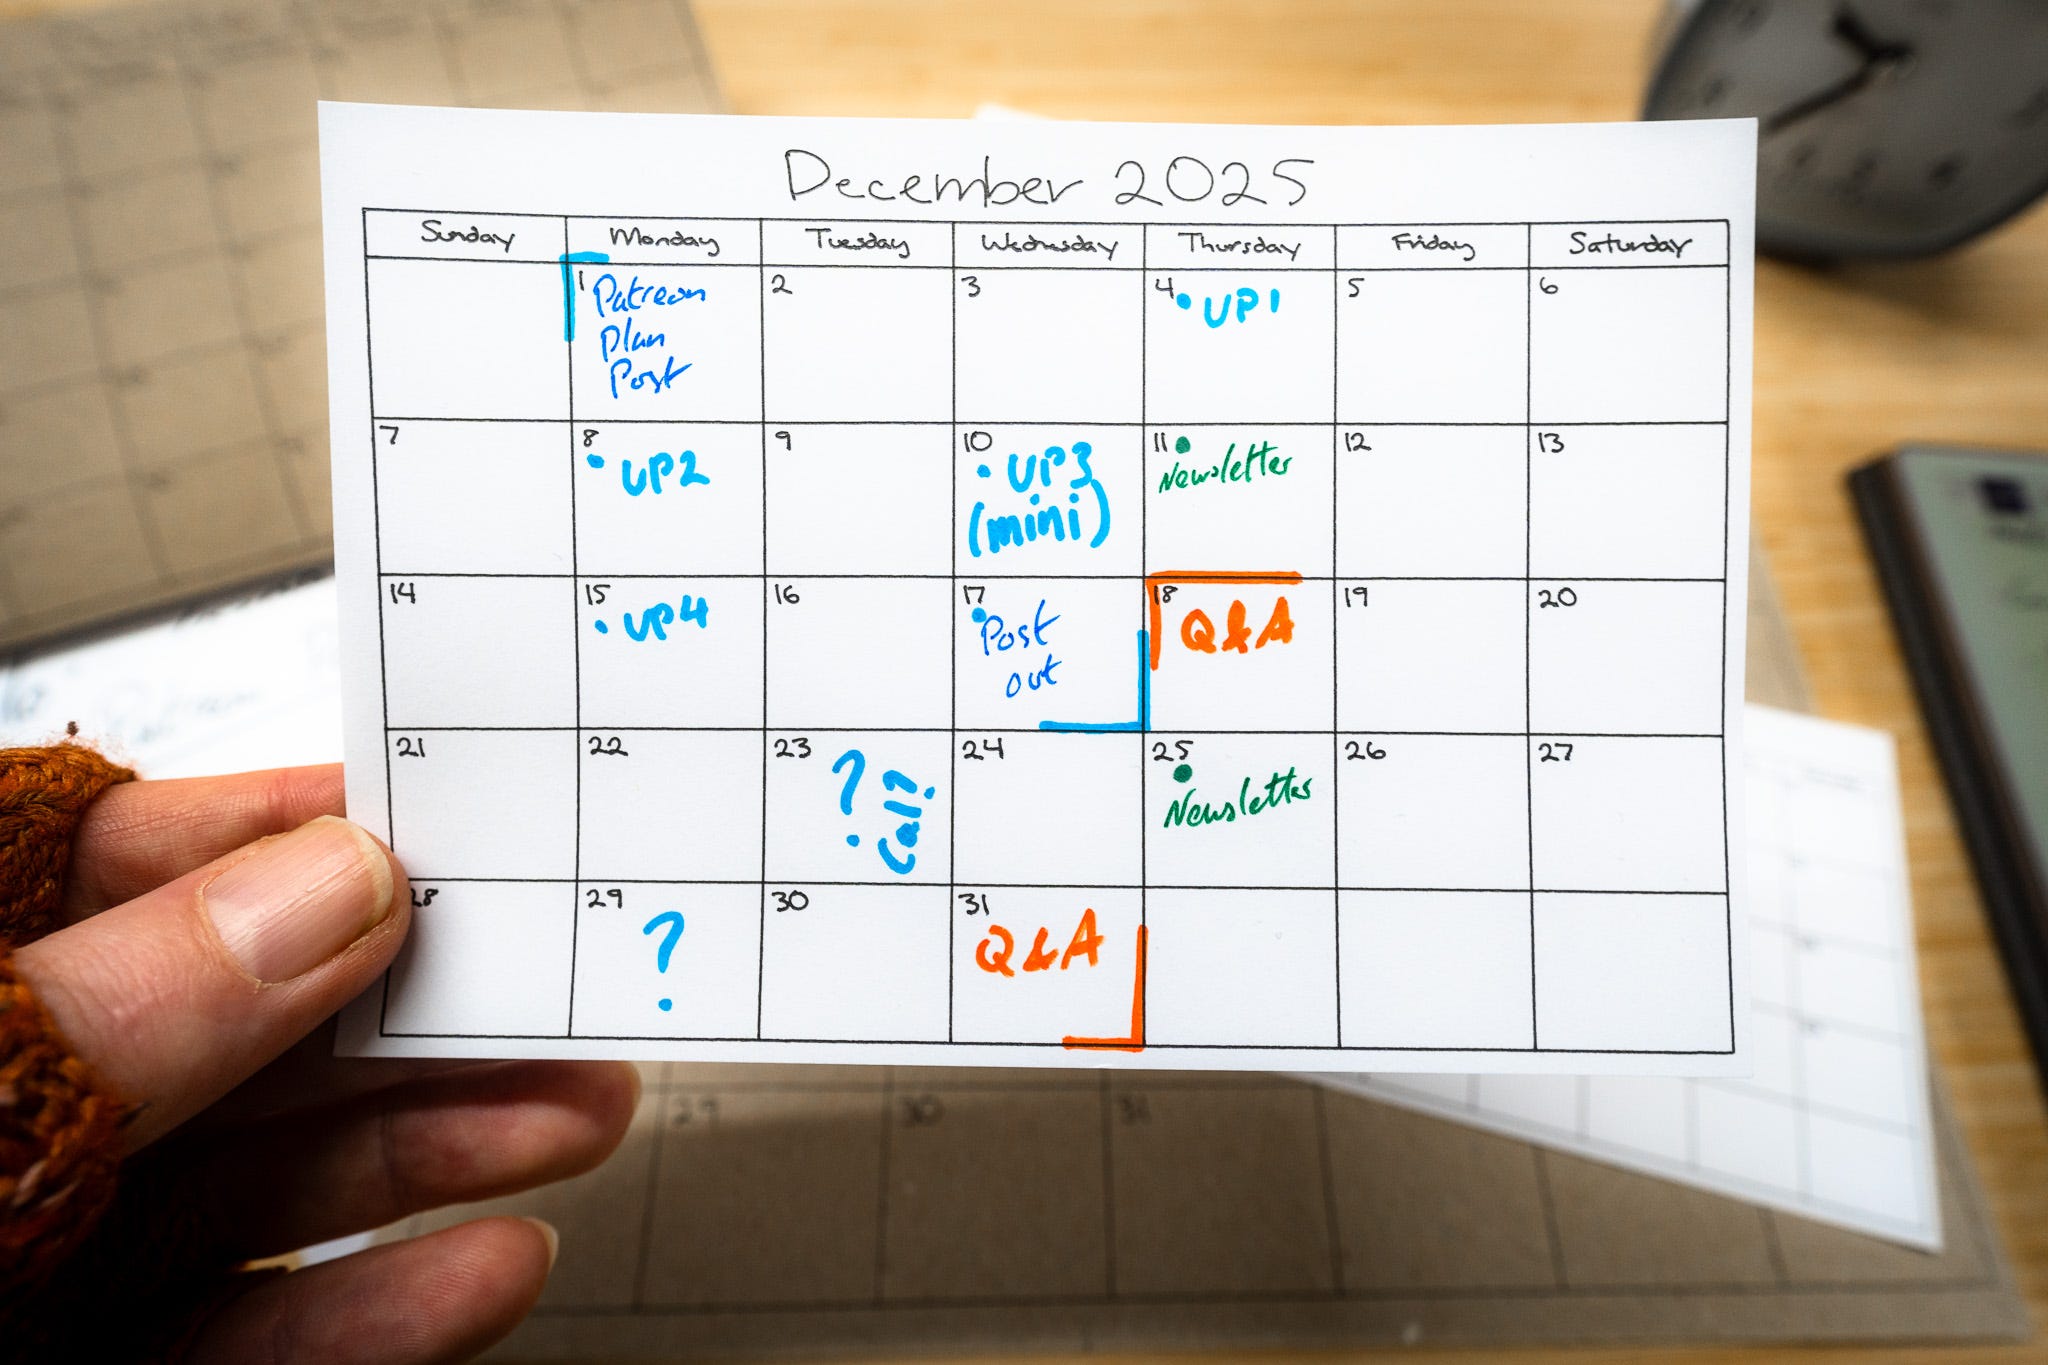 December 2025
Sunday Monday Tuesday Wednesday Thursday Friday Saturday
1 Patreon Plan Post 2 3 4 UP1 5 6
7 8 UP2 9 10 UP3 (mini) 11 Newsletter 12 13
14 15 UP4 16 17 Post out 18 Q&A 19 20
21 22 23 ? Call? 24 25 Newsletter 26 27
28 29 ? 30 31 Q&A
29 30 31